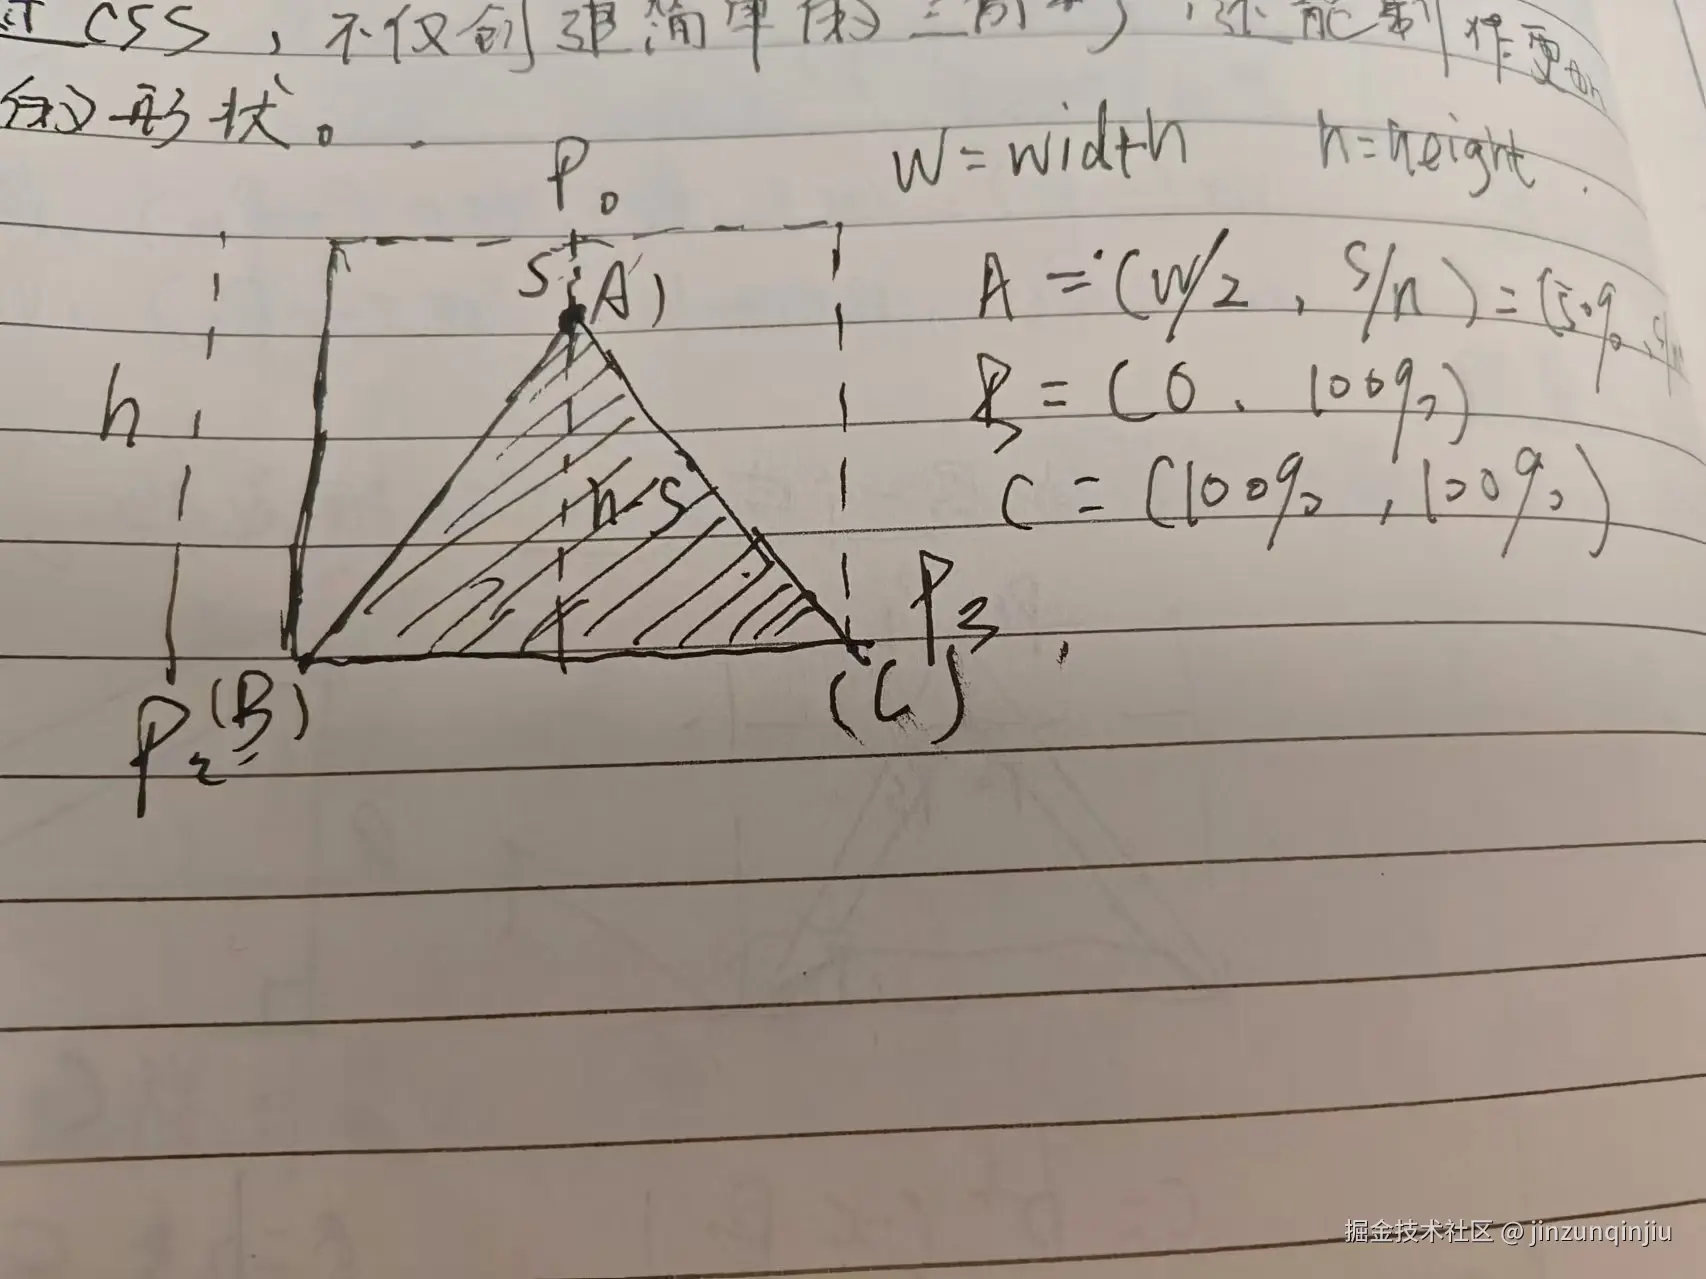 CSS，不仅创建简单的三角形，还能制作更加
的形状。
w=width h=height.
P0
S (A)
A = (w/2, s/h) = (50%, s/h
h
B = (0, 100%)
C = (100%, 100%)
h-s
P3
P2 (B) (C)
掘金技术社区 @ jinzunqinjiu